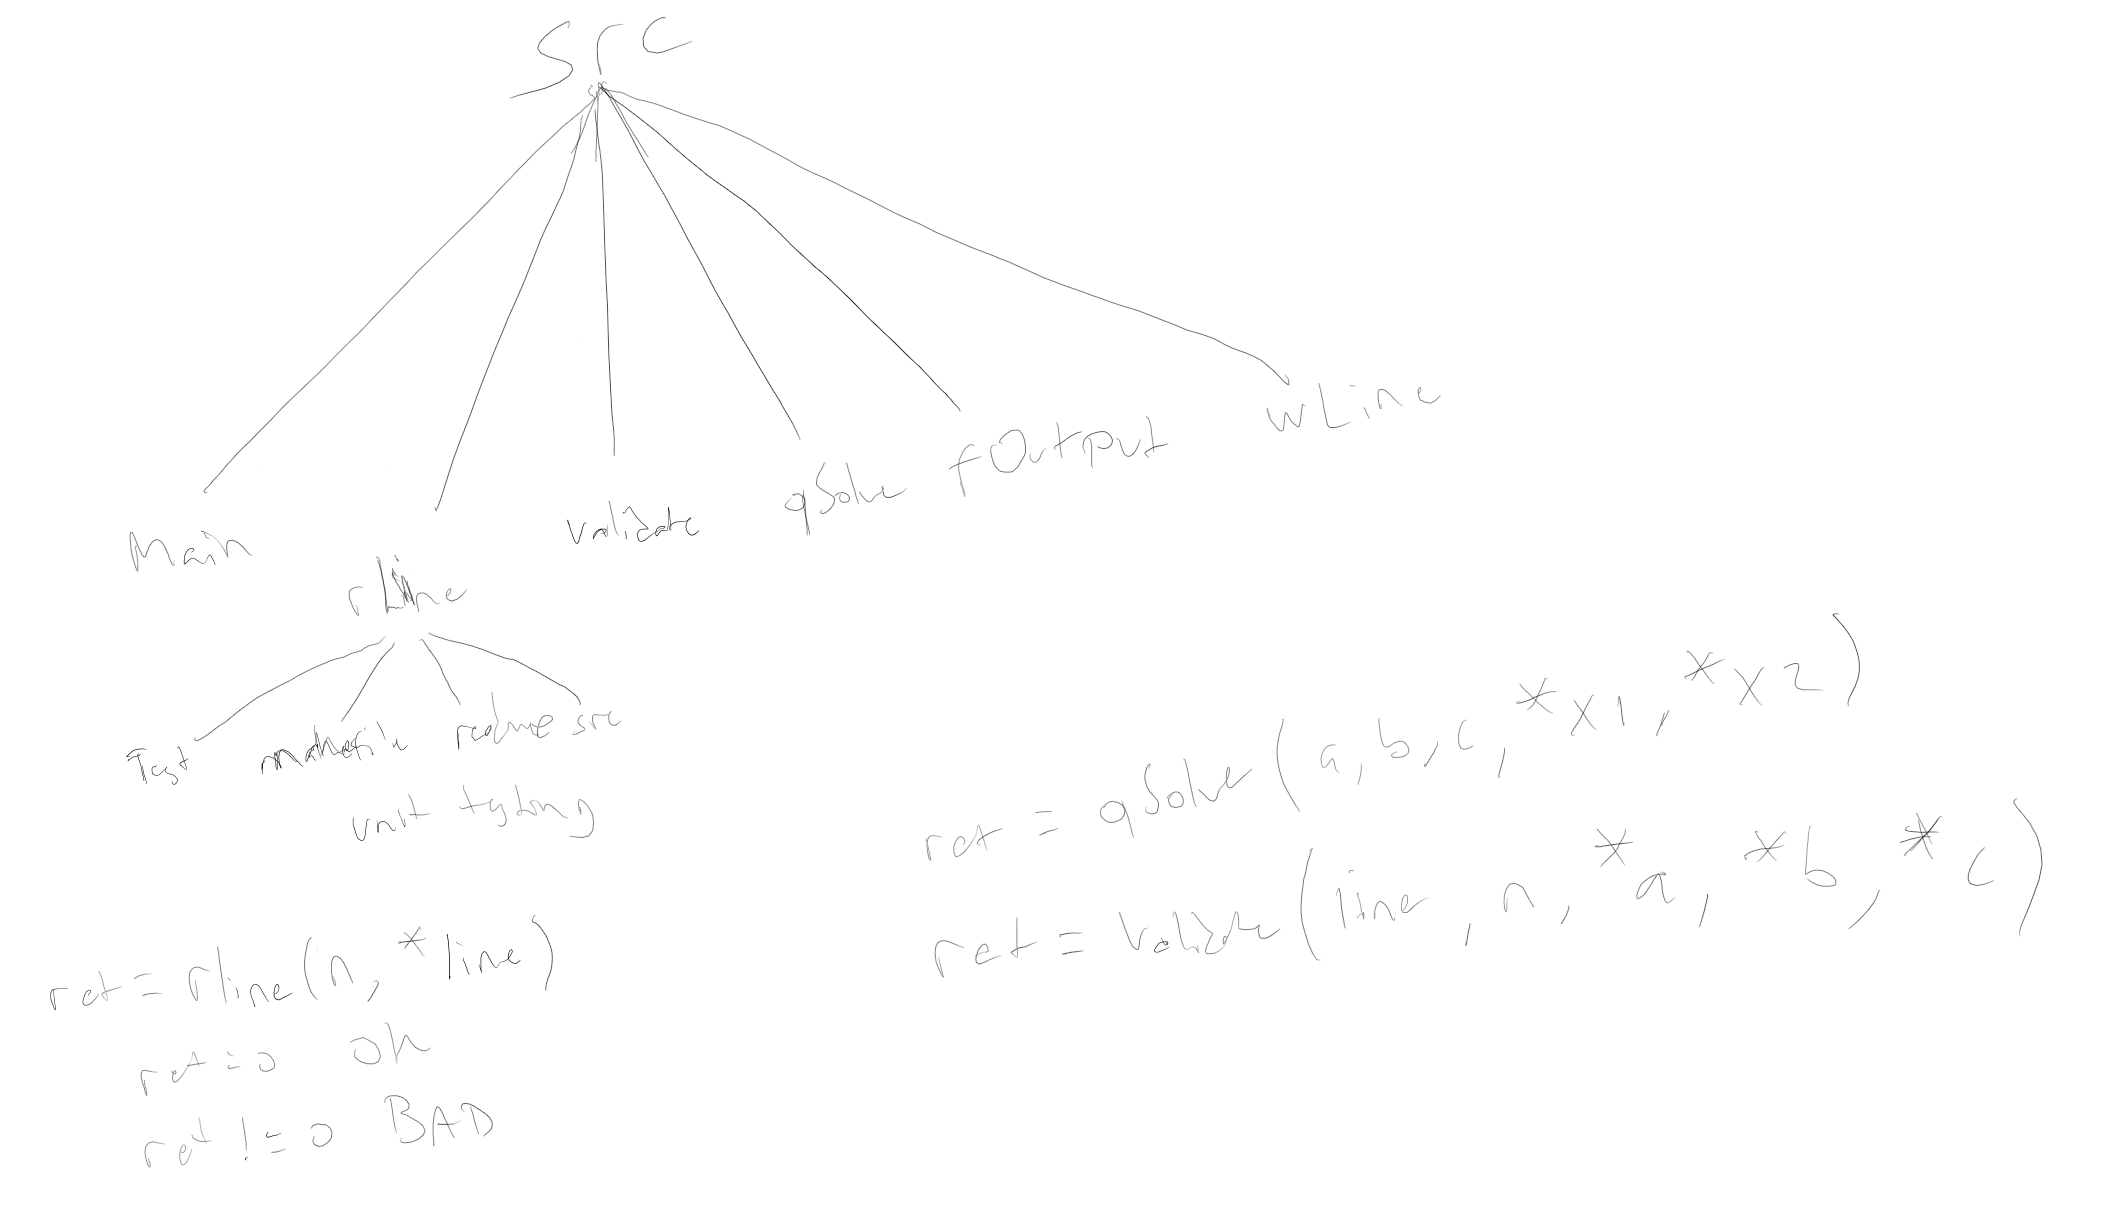 Src
Main
rLine
validate
qSolve
fOutput
wLine
Test
makefile
readme
src
unit testing
ret = rline(n, *line)
ret = 0 ok
ret != 0 BAD
ret = qSolve(a, b, c, *x1, *x2)
ret = Validate(line, n, *a, *b, *c)